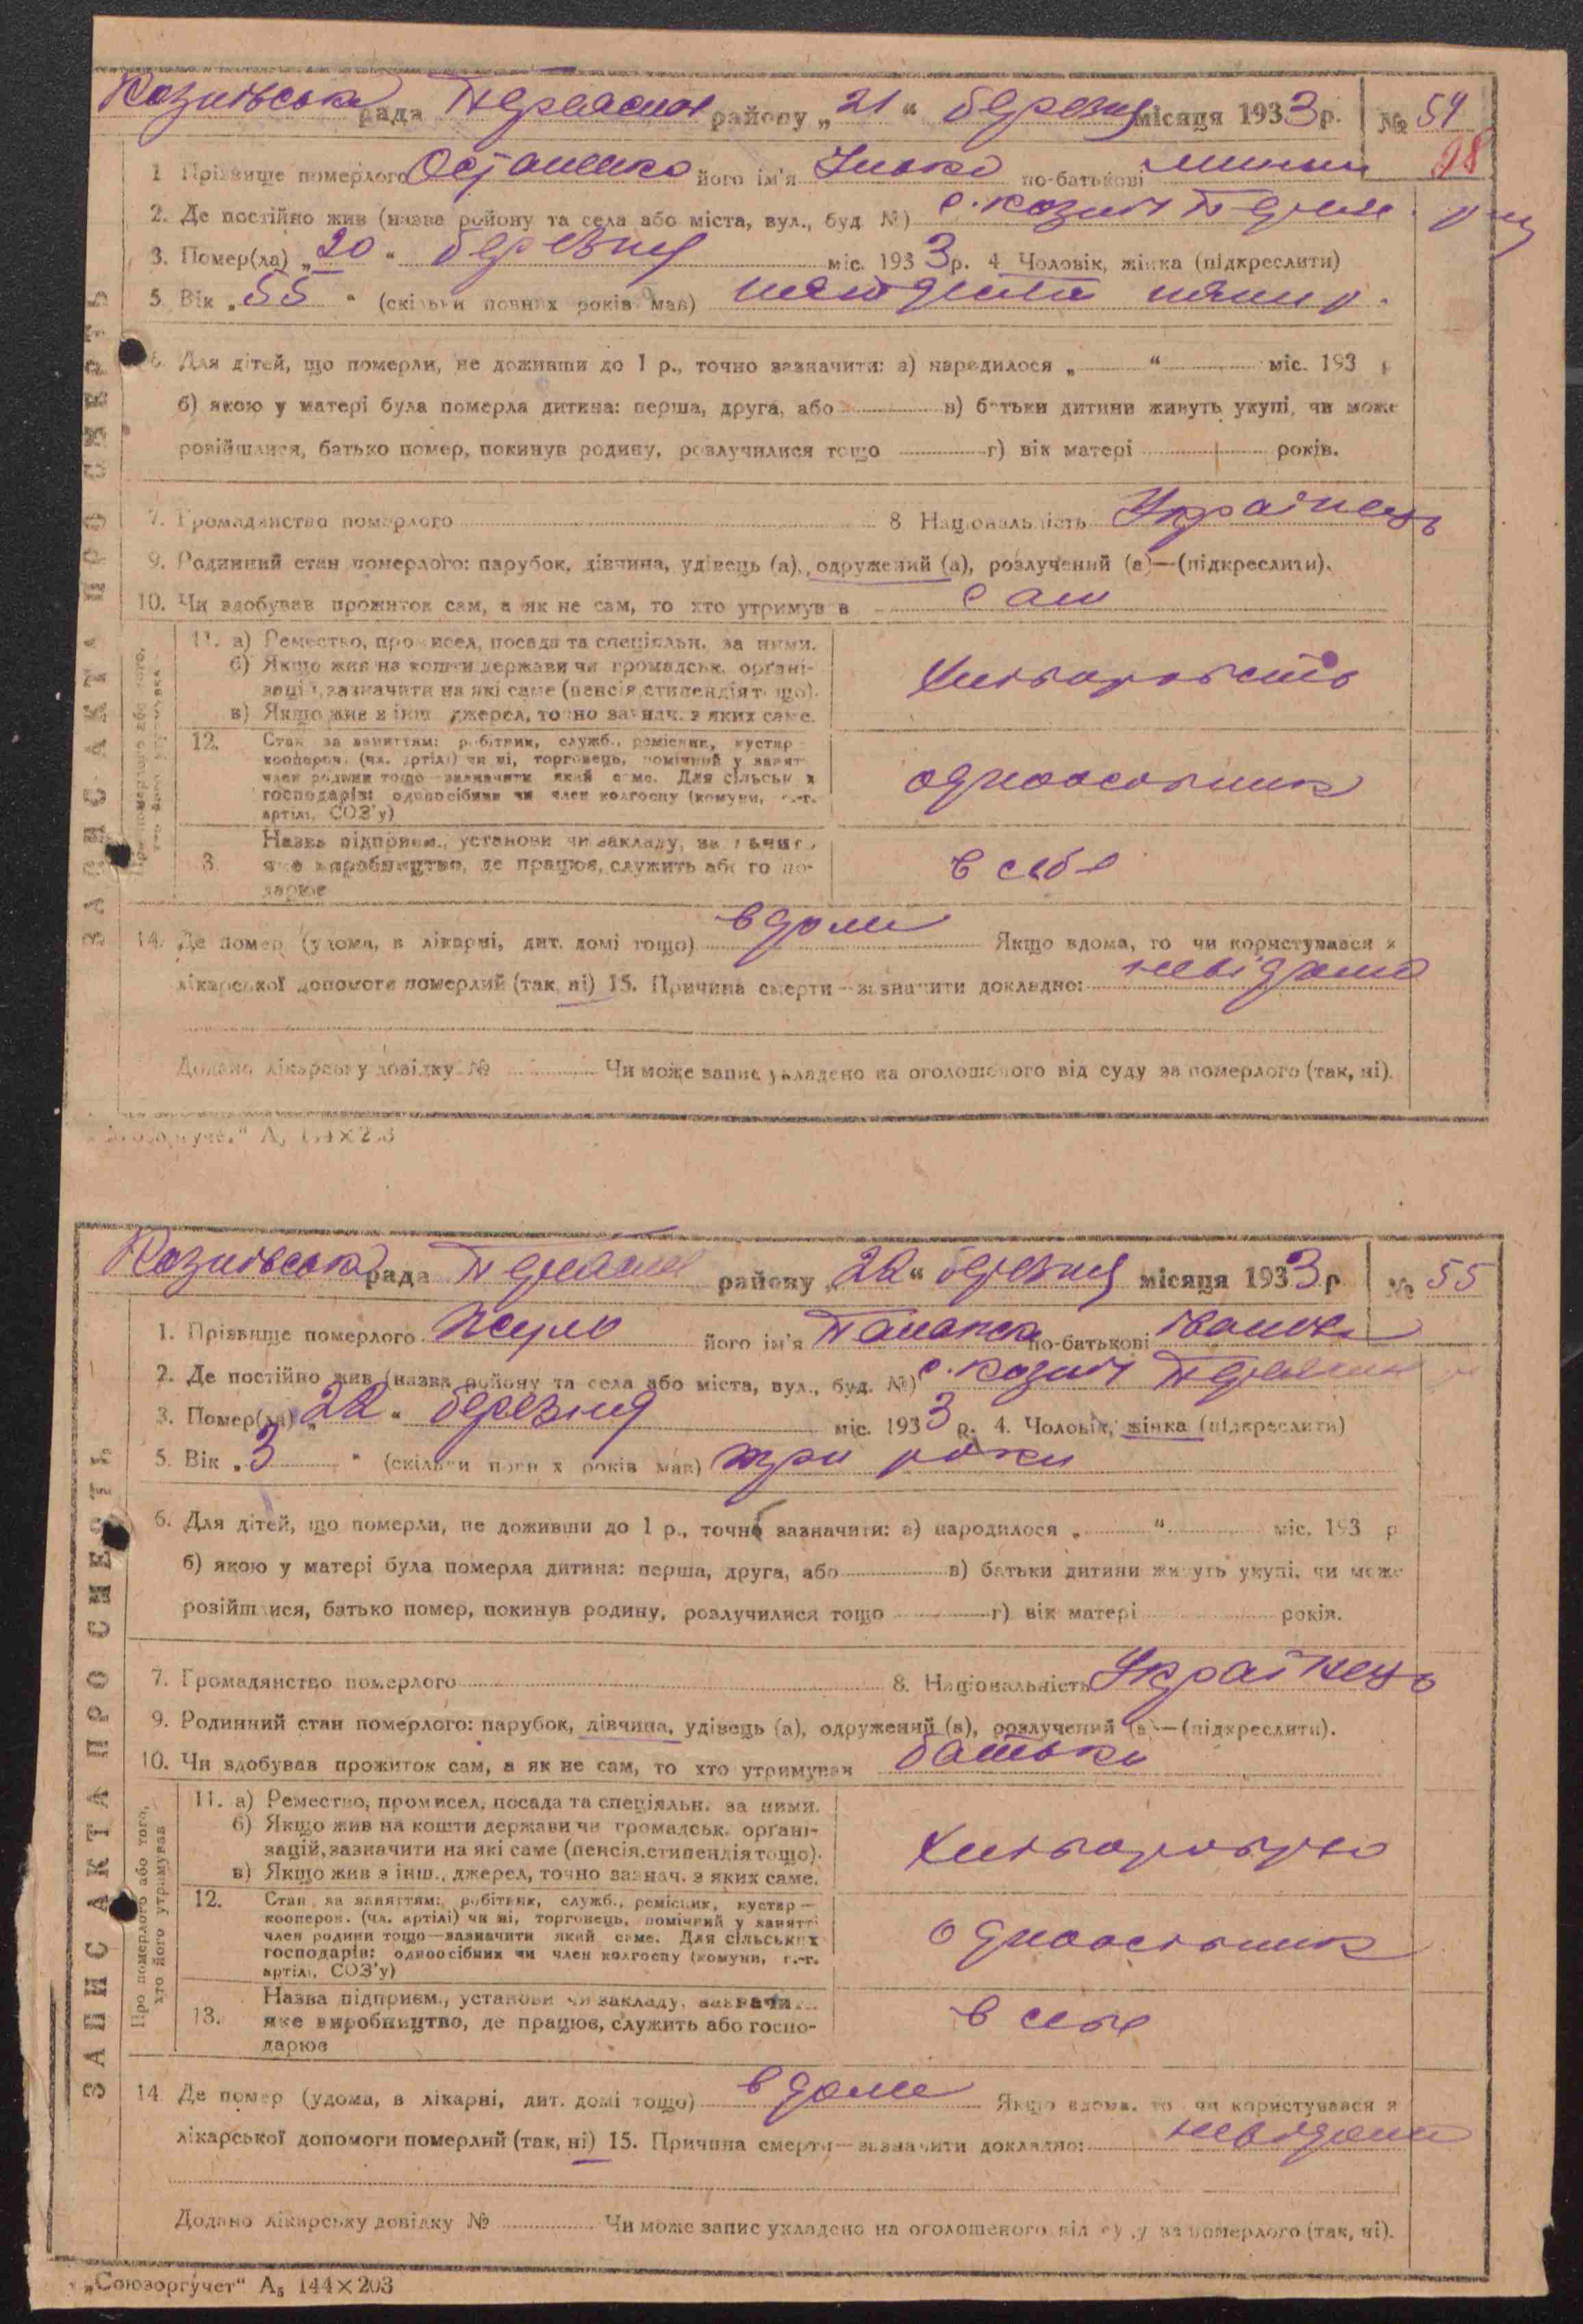 Козинська рада Переяслав району „21“ березня місяця 1933 р. № 54
98
1 Прізвище померлого Осташенко його ім'я по-батькові
2. Де постійно жив (назва району та села або міста, вул., буд. №) с. Козин Переяс.
3. Помер(ла) „20“ березня міс. 1933 р. 4 Чоловік, жінка (підкреслити)
5. Вік „55“ (скільки повних років мав)
6. Для дітей, що померли, не доживши до 1 р., точно зазначити: а) народилося „ “ міс. 193 р
б) якою у матері була померла дитина: перша, друга, або в) батьки дитини живуть укупі, чи може
розійшлися, батько помер, покинув родину, розлучилися тощо г) вік матері років.
7. Громадянство померлого 8. Національність Українець
9. Родинний стан померлого: парубок, дівчина, удівець (а), одружений (а), розлучений (а)—(підкреслити).
10. Чи здобував прожиток сам, а як не сам, то хто утримував сам
ЗАПИС АКТА ПРО СМЕРТЬ
Про померлого або того, хто його утримував
11. а) Ремество, промисел, посада та спеціяльн. за ними.
б) Якщо жив на кошти держави чи громадськ. органі-
зацій, зазначити на які саме (пенсія, стипендія тощо).
в) Якщо жив з інш. джерел, точно зазнач. з яких саме.
12. Стан за заняттям: робітник, служб., ремісник, кустар—
кооперов. (чл. артілі) чи ні, торговець, помічний у занятті
член родини тощо—зазначити який саме. Для сільських
господарів: одноосібник чи член колгоспу (комуни, с.-г.
артілі, СОЗ'у)
одноосібник
Назва підприєм., установи чи закладу, зазначити
3. яке виробництво, де працює, служить або госпо-
дарює
в себе
14. Де помер (удома, в лікарні, дит. домі тощо) вдома Якщо вдома, то чи користувався з
лікарської допомоги померлий (так, ні) 15. Причина смерти—зазначити докладно: невідома
Додано лікарську довідку № Чи може запис укладено на оголошеного від суду за померлого (так, ні).
„Союзоргучет“ А₅ 144×203
Козинська рада Переяслав району „22“ березня місяця 1933 р № 55
1. Прізвище померлого його ім'я по-батькові
2. Де постійно жив (назва району та села або міста, вул., буд. №) с. Козин
3. Помер(ла) „22“ березня міс. 1933 р. 4. Чоловік, жінка (підкреслити)
5. Вік „3“ (скільки повних років мав) три роки
6. Для дітей, що померли, не доживши до 1 р., точно зазначити: а) народилося „ “ міс. 193 р
б) якою у матері була померла дитина: перша, друга, або в) батьки дитини живуть укупі, чи може
розійшлися, батько помер, покинув родину, розлучилися тощо г) вік матері років.
7. Громадянство померлого 8. Національність Українець
9. Родинний стан померлого: парубок, дівчина, удівець (а), одружений (а), розлучений (а)—(підкреслити).
10. Чи здобував прожиток сам, а як не сам, то хто утримував батько
ЗАПИС АКТА ПРО СМЕРТЬ
Про померлого або того, хто його утримував
11. а) Ремество, промисел, посада та спеціяльн. за ними.
б) Якщо жив на кошти держави чи громадськ. органі-
зацій, зазначити на які саме (пенсія, стипендія тощо).
в) Якщо жив з інш., джерел, точно зазнач. з яких саме.
12. Стан за заняттям: робітник, служб., ремісник, кустар—
кооперов. (чл. артілі) чи ні, торговець, помічний у занятті
член родини тощо—зазначити який саме. Для сільських
господарів: одноосібник чи член колгоспу (комуни, с.-г.
артілі, СОЗ'у)
одноосібник
Назва підприєм., установи чи закладу, зазначи...
13. яке виробництво, де працює, служить або госпо-
дарює
в себе
14 Де помер (удома, в лікарні, дит. домі тощо) вдома Якщо вдома, то чи користувався з
лікарської допомоги померлий (так, ні) 15. Причина смерти—зазначити докладно: невідома
Додано лікарську довідку № Чи може запис укладено на оголошеного від суду за померлого (так, ні).
„Союзоргучет“ А₅ 144×203